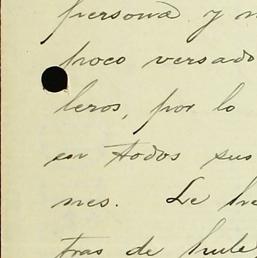 persona y n
poco versado
leros, por lo
en todos sus
nes. Le he
tras de hule